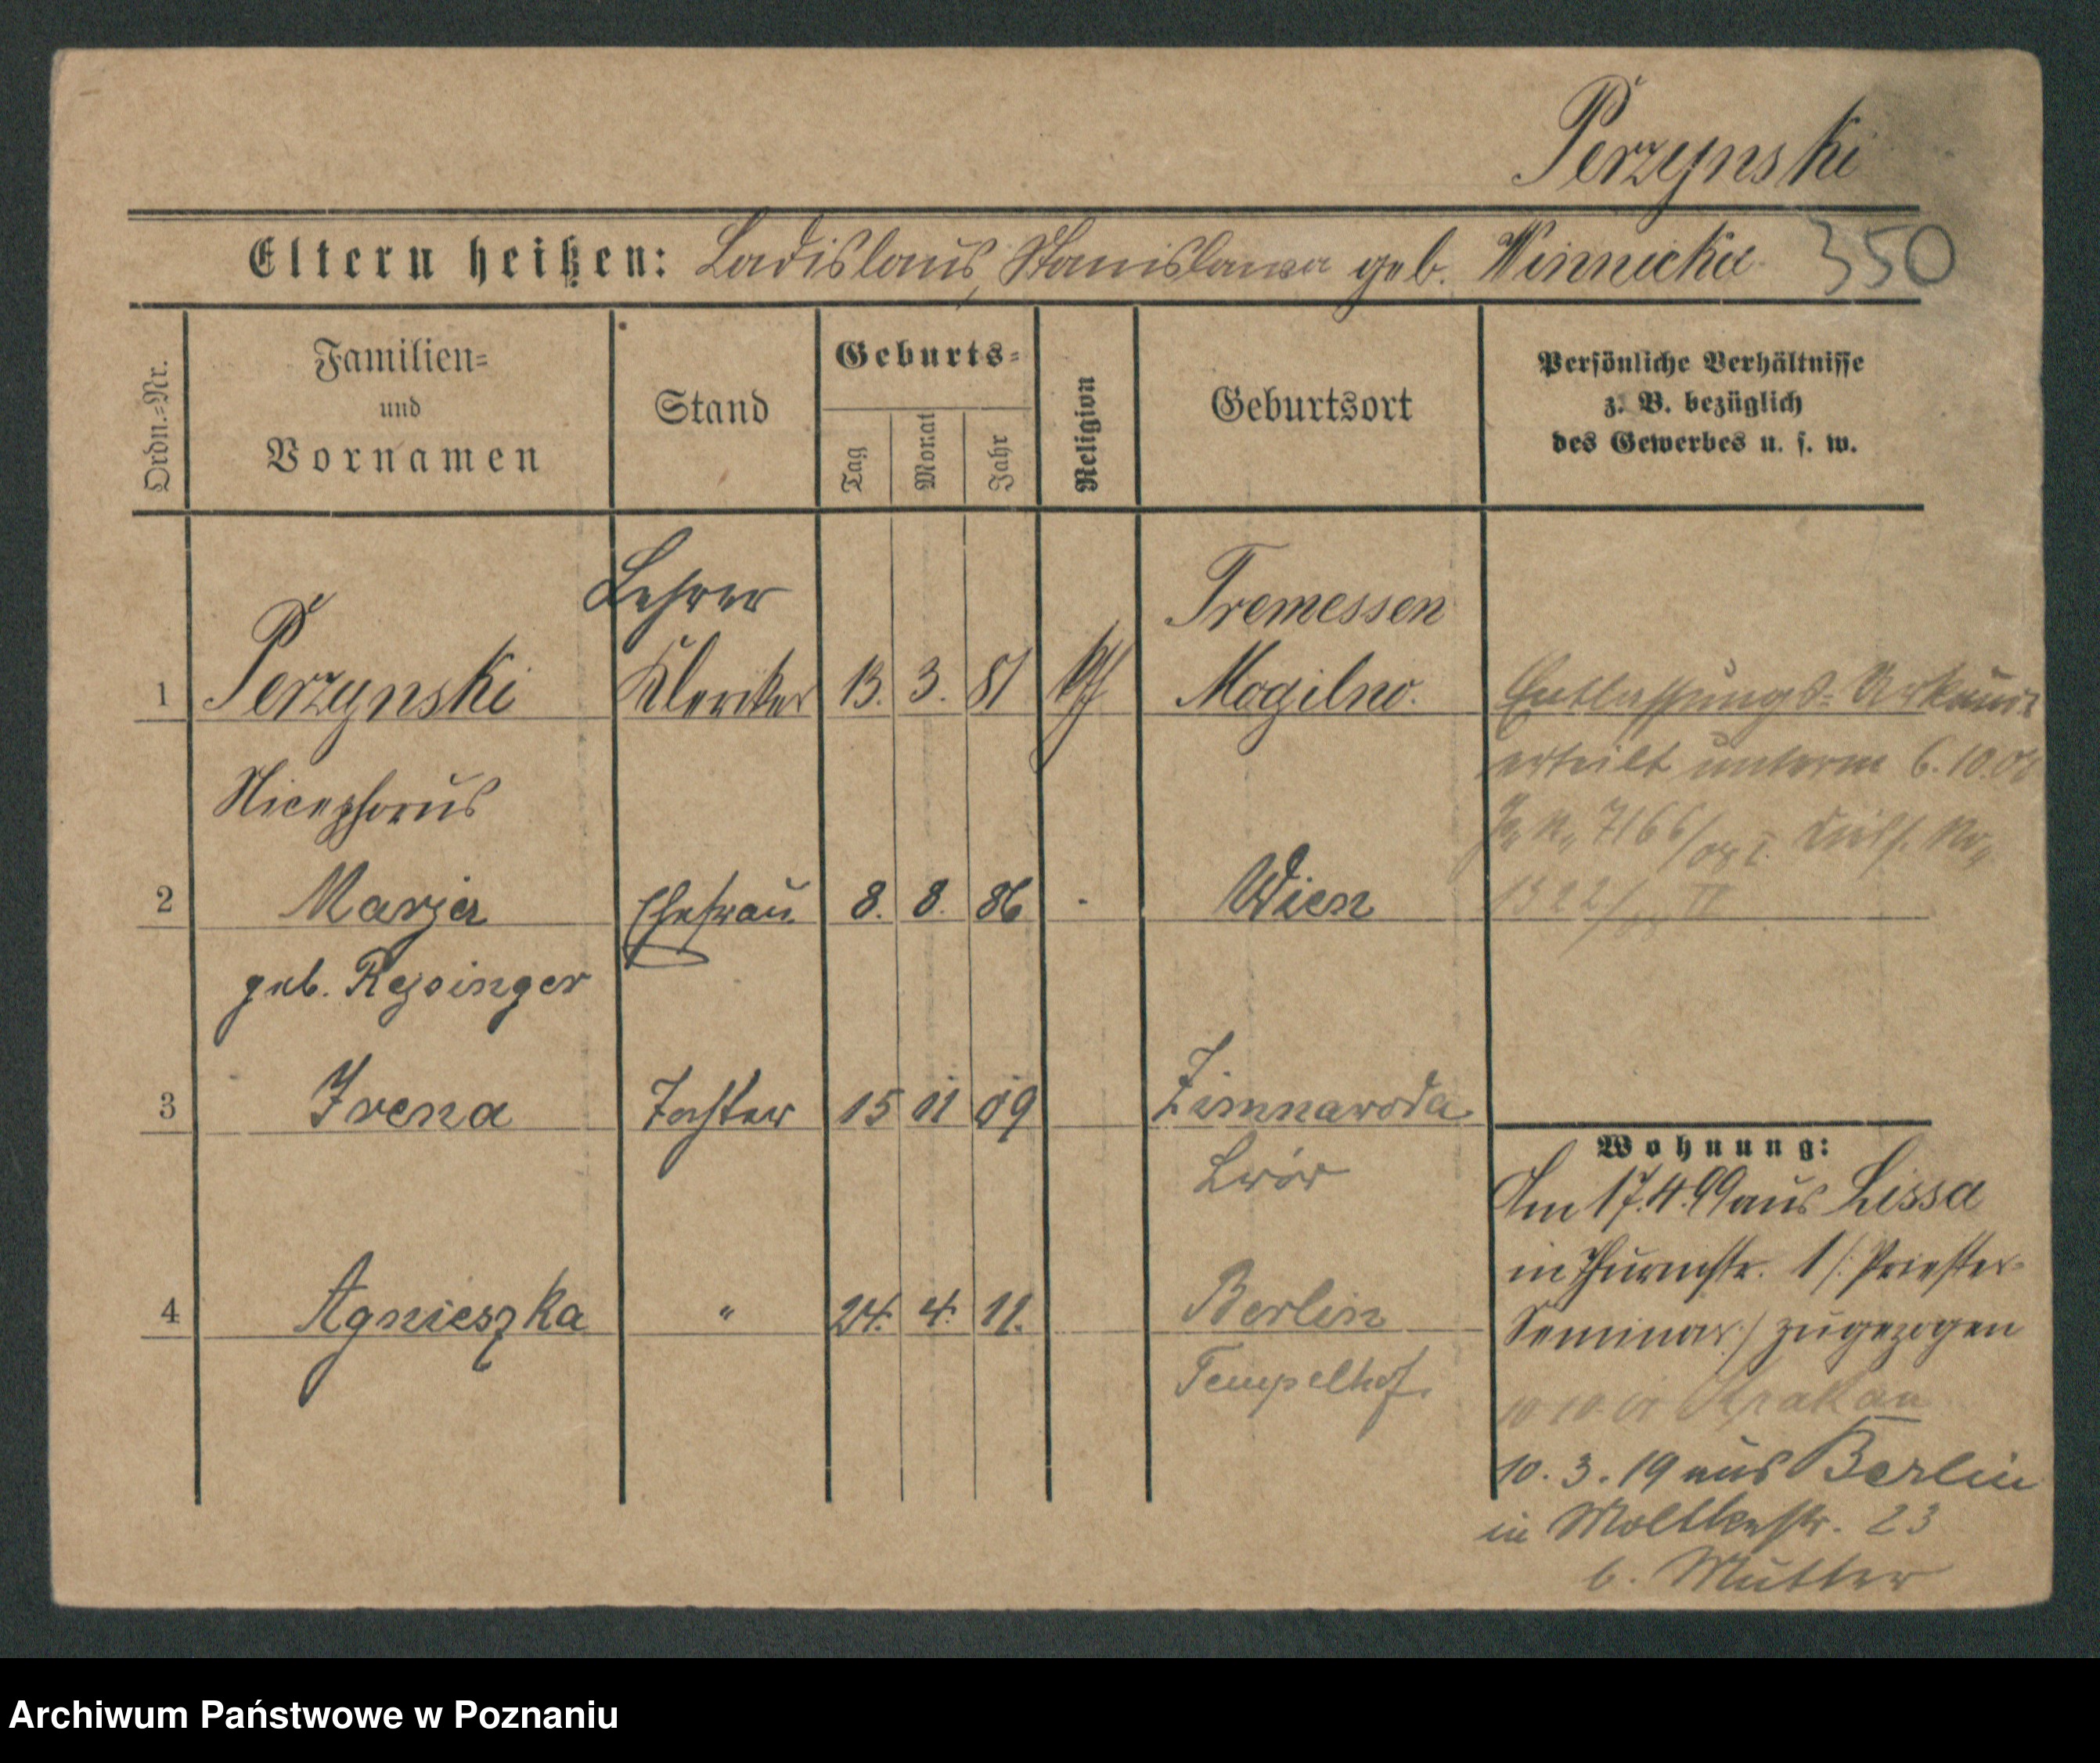 Perzynski
Eltern heißen: Ladislaus, Stanislawa geb. Winnicka 350
Ordn.-Nr.
Familien-
und
Vornamen
Stand
Geburts-
Tag
Monat
Jahr
Religion
Geburtsort
Persönliche Verhältnisse
z. B. bezüglich
des Gewerbes u. s. w.
Lehrer
Tremessen
1 Perzynski Kleriker 13. 3. 81 Mogilno.
Entlassungs-Urkunde
erteilt unterm 6.10.08
7166/08 I.
Nicephorus
2 Marja Ehefrau 8. 8. 86 Wien
1322/08 II
geb. Rejsinger
3 Irena Tochter 15 11 09 Zimnawoda
Lwów
4 Agnieszka " 24. 4. 12. Berlin
Tempelhof.
Wohnung:
Am 17.4.99 aus Lissa
in Thurmstr. 1 /: Priester-
Seminar :/ zugezogen
Krakau
10. 3. 19 aus Berlin
in Moltkestr. 23
b. Mutter
Archiwum Państwowe w Poznaniu